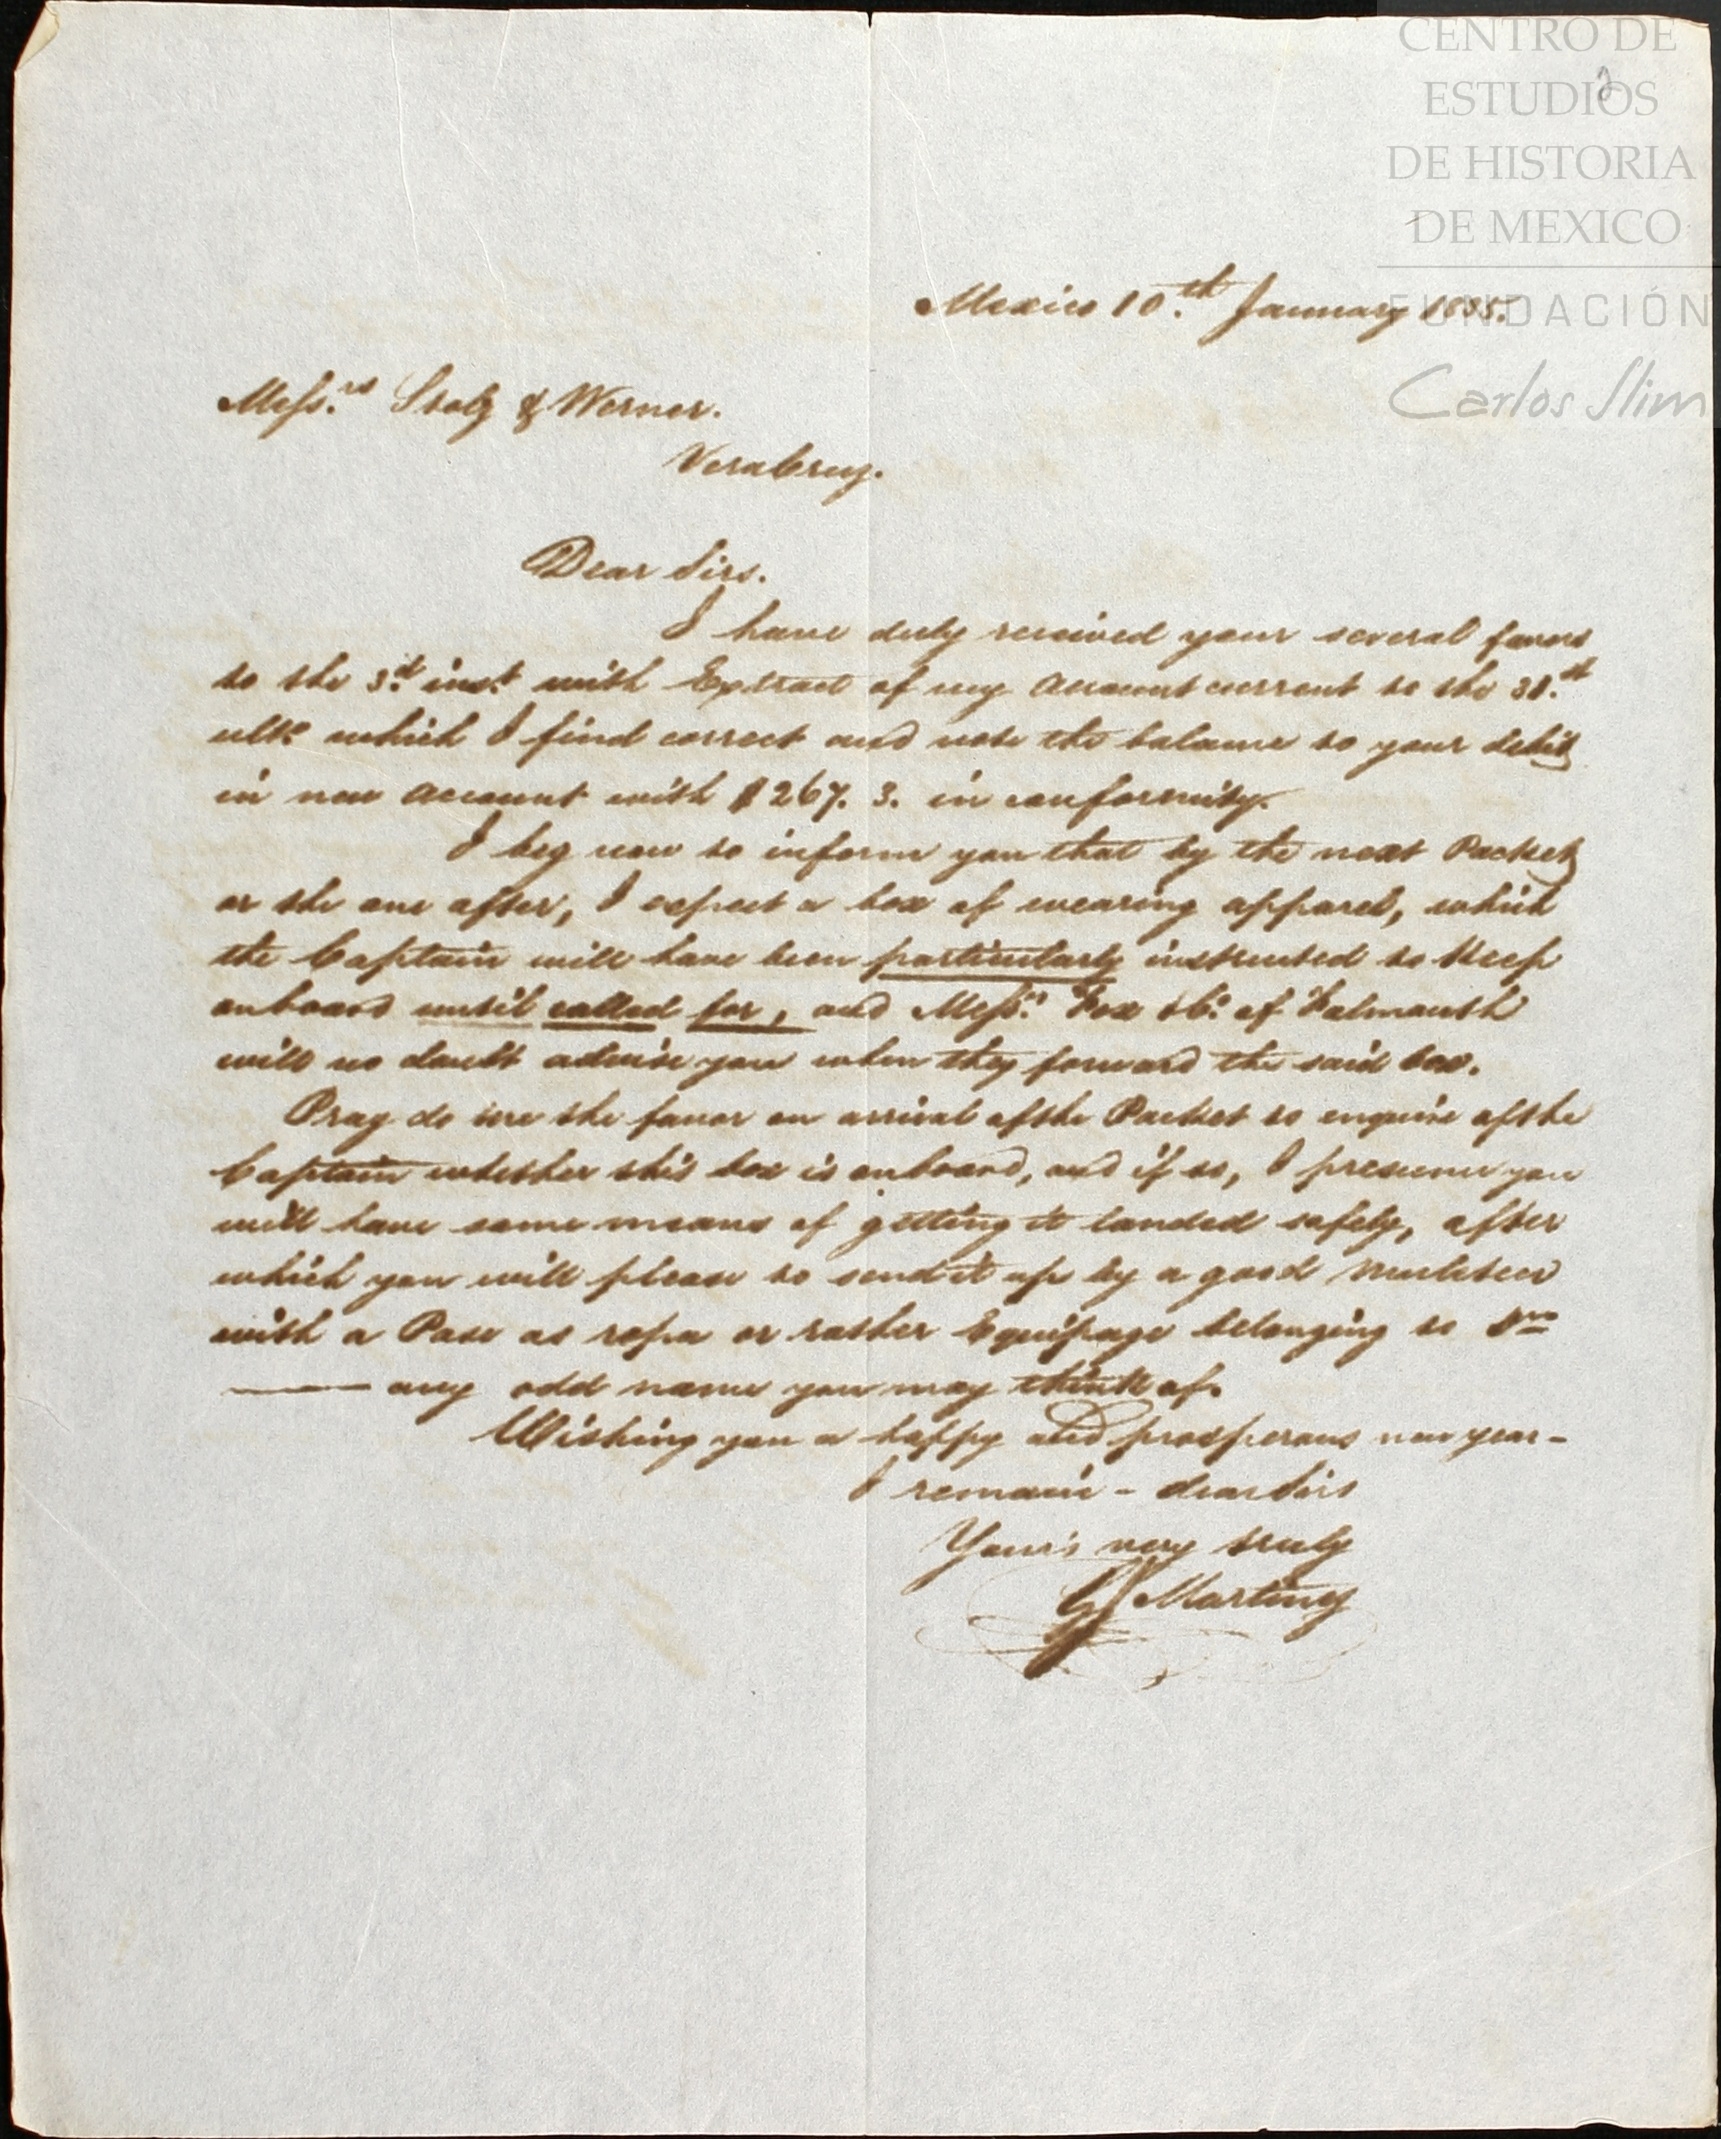 CENTRO DE
ESTUDIOS
DE HISTORIA
DE MEXICO
FUNDACIÓN
Carlos Slim
2
Mexico 10.th January 1835.
Mess.rs Stolz & Werner.
VeraCruz.
Dear Sirs.
I have duly received your several favors
to the 3.d inst. with Extract of my Account current to the 31.st
ulto. which I find correct and note the balance to your debit
in new account with $267. 3. in conformity.
I beg now to inform you that by the next Packet
or the one after, I expect a box of wearing apparel, which
the Captain will have been particularly instructed to keep
onboard until called for, and Mess.rs Fox & Co. of Falmouth
will no doubt advise you when they forward the said box.
Pray do me the favor on arrival of the Packet to enquire of the
Captain whether this box is onboard, and if so, I presume you
will have some means of getting it landed safely, after
which you will please to send it up by a good Muleteer
with a Pase as ropa or rather Equipage belonging to Dn
—— any odd name you may think of.
Wishing you a happy and prosperous new year –
I remain – dear Sirs
Your's very truly
Martiny